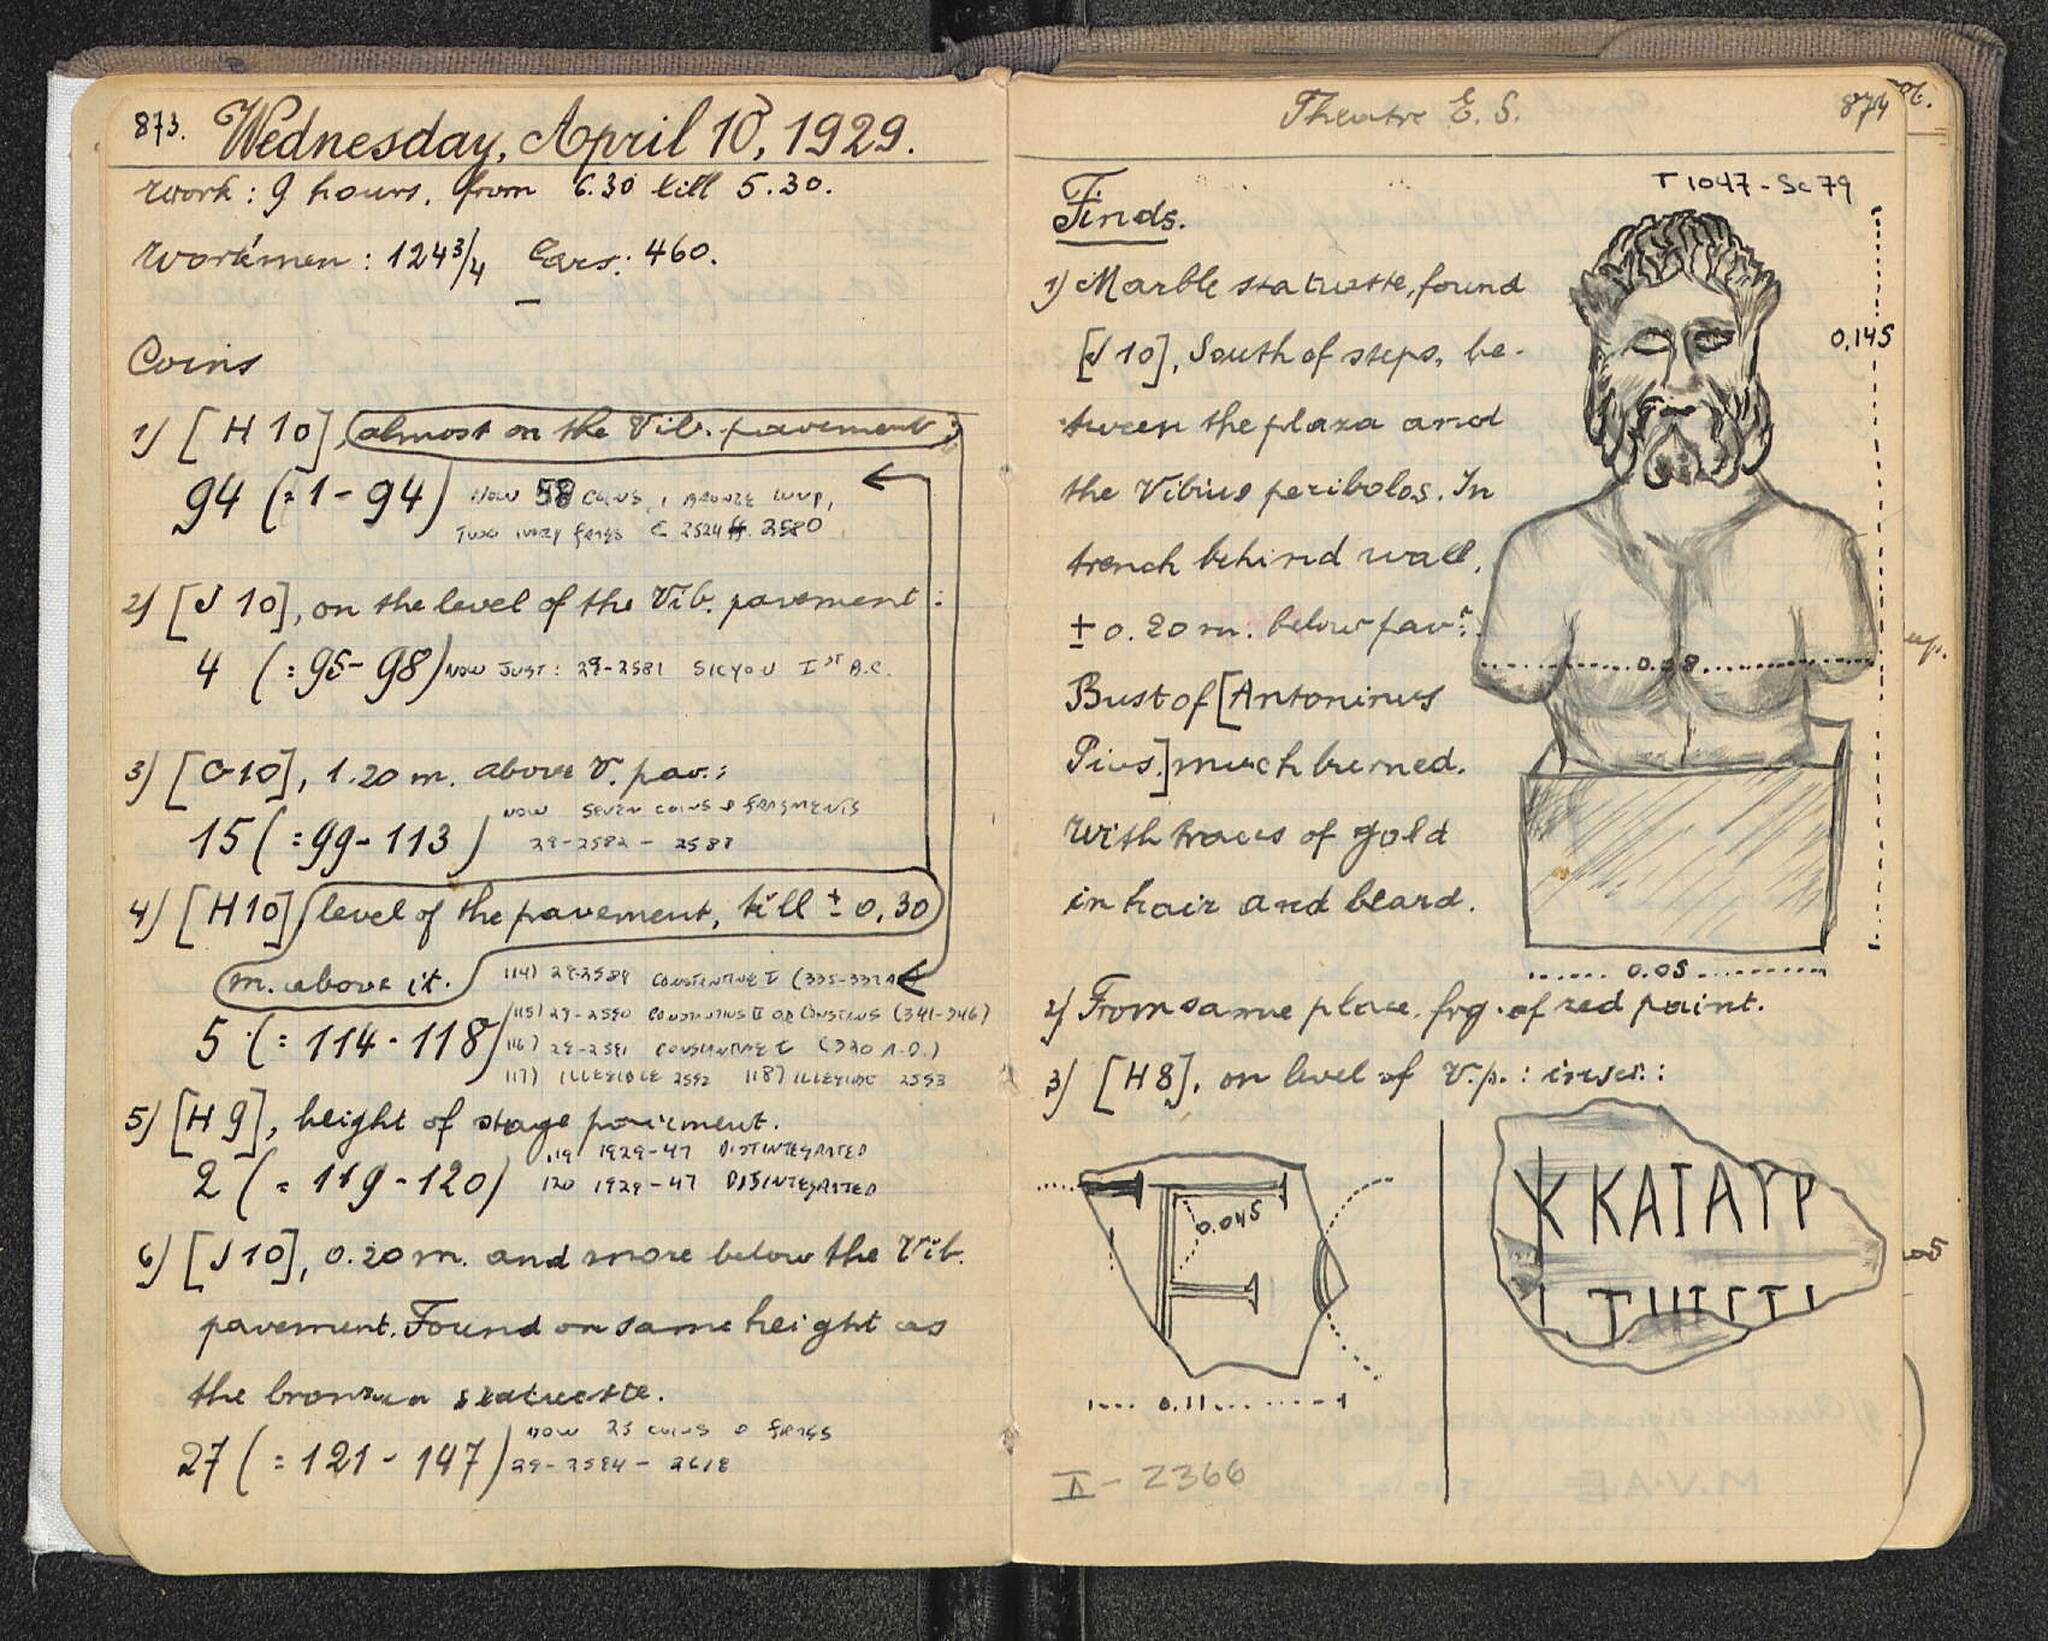 873. Wednesday, April 10, 1929.
Work: 9 hours, from 6.30 till 5.30.
Workmen: 124 3/4 Cars: 460.
Coins
1) [H 10], almost on the Vib. pavement:
94 (=1-94) NOW 58 COINS, 1 BRONZE LUMP,
TWO IVORY frags C 2524 ff. 2580
2) [J 10], on the level of the Vib. pavement:
4 (=95-98) NOW JUST: 29-2581 SICYON Iˢᵗ B.C.
3) [O 10], 1.20 m. above V. pav.:
NOW SEVEN COINS & FRAGMENTS
15 (=99-113) 29-2582 - 2588
4) [H10], level of the pavement, till ± 0,30
m. above it. 114) 29-2589 CONSTANTINE I (335-337 A.D.)
115) 29-2590 CONSTANTIUS II OR CONSTANS (341-346)
5 (=114-118) 116) 29-2591 CONSTANTINE I (320 A.D.)
117) ILLEGIBLE 2592 118) ILLEGIBLE 2593
5) [H 9], height of stage pavement.
119 1929-47 DISINTEGRATED
2 (=119-120) 120 1929-47 DISINTEGRATED
6) [J 10], 0.20 m. and more below the Vib.
pavement. Found on same height as
the bronze statuette.
NOW 25 COINS & frags
27 (=121-147) 29-2594 - 2618
Theatre E. S. 874
T 1047 - Sc 79
Finds.
1) Marble statuette, found
[J 10], South of steps, be-
tween the plaza and
the Vibius peribolos. In
trench behind wall,
± 0.20 m. below pav.:
Bust of [Antoninus
Pius.] much burned.
With traces of gold
in hair and beard.
0.145
0.08
0.05
2) From same place. frg. of red paint.
3) [H8], on level of V.p.: inscr.:
0.045
0.11
Ι ΚΑΙΑΥΡ
I-2366